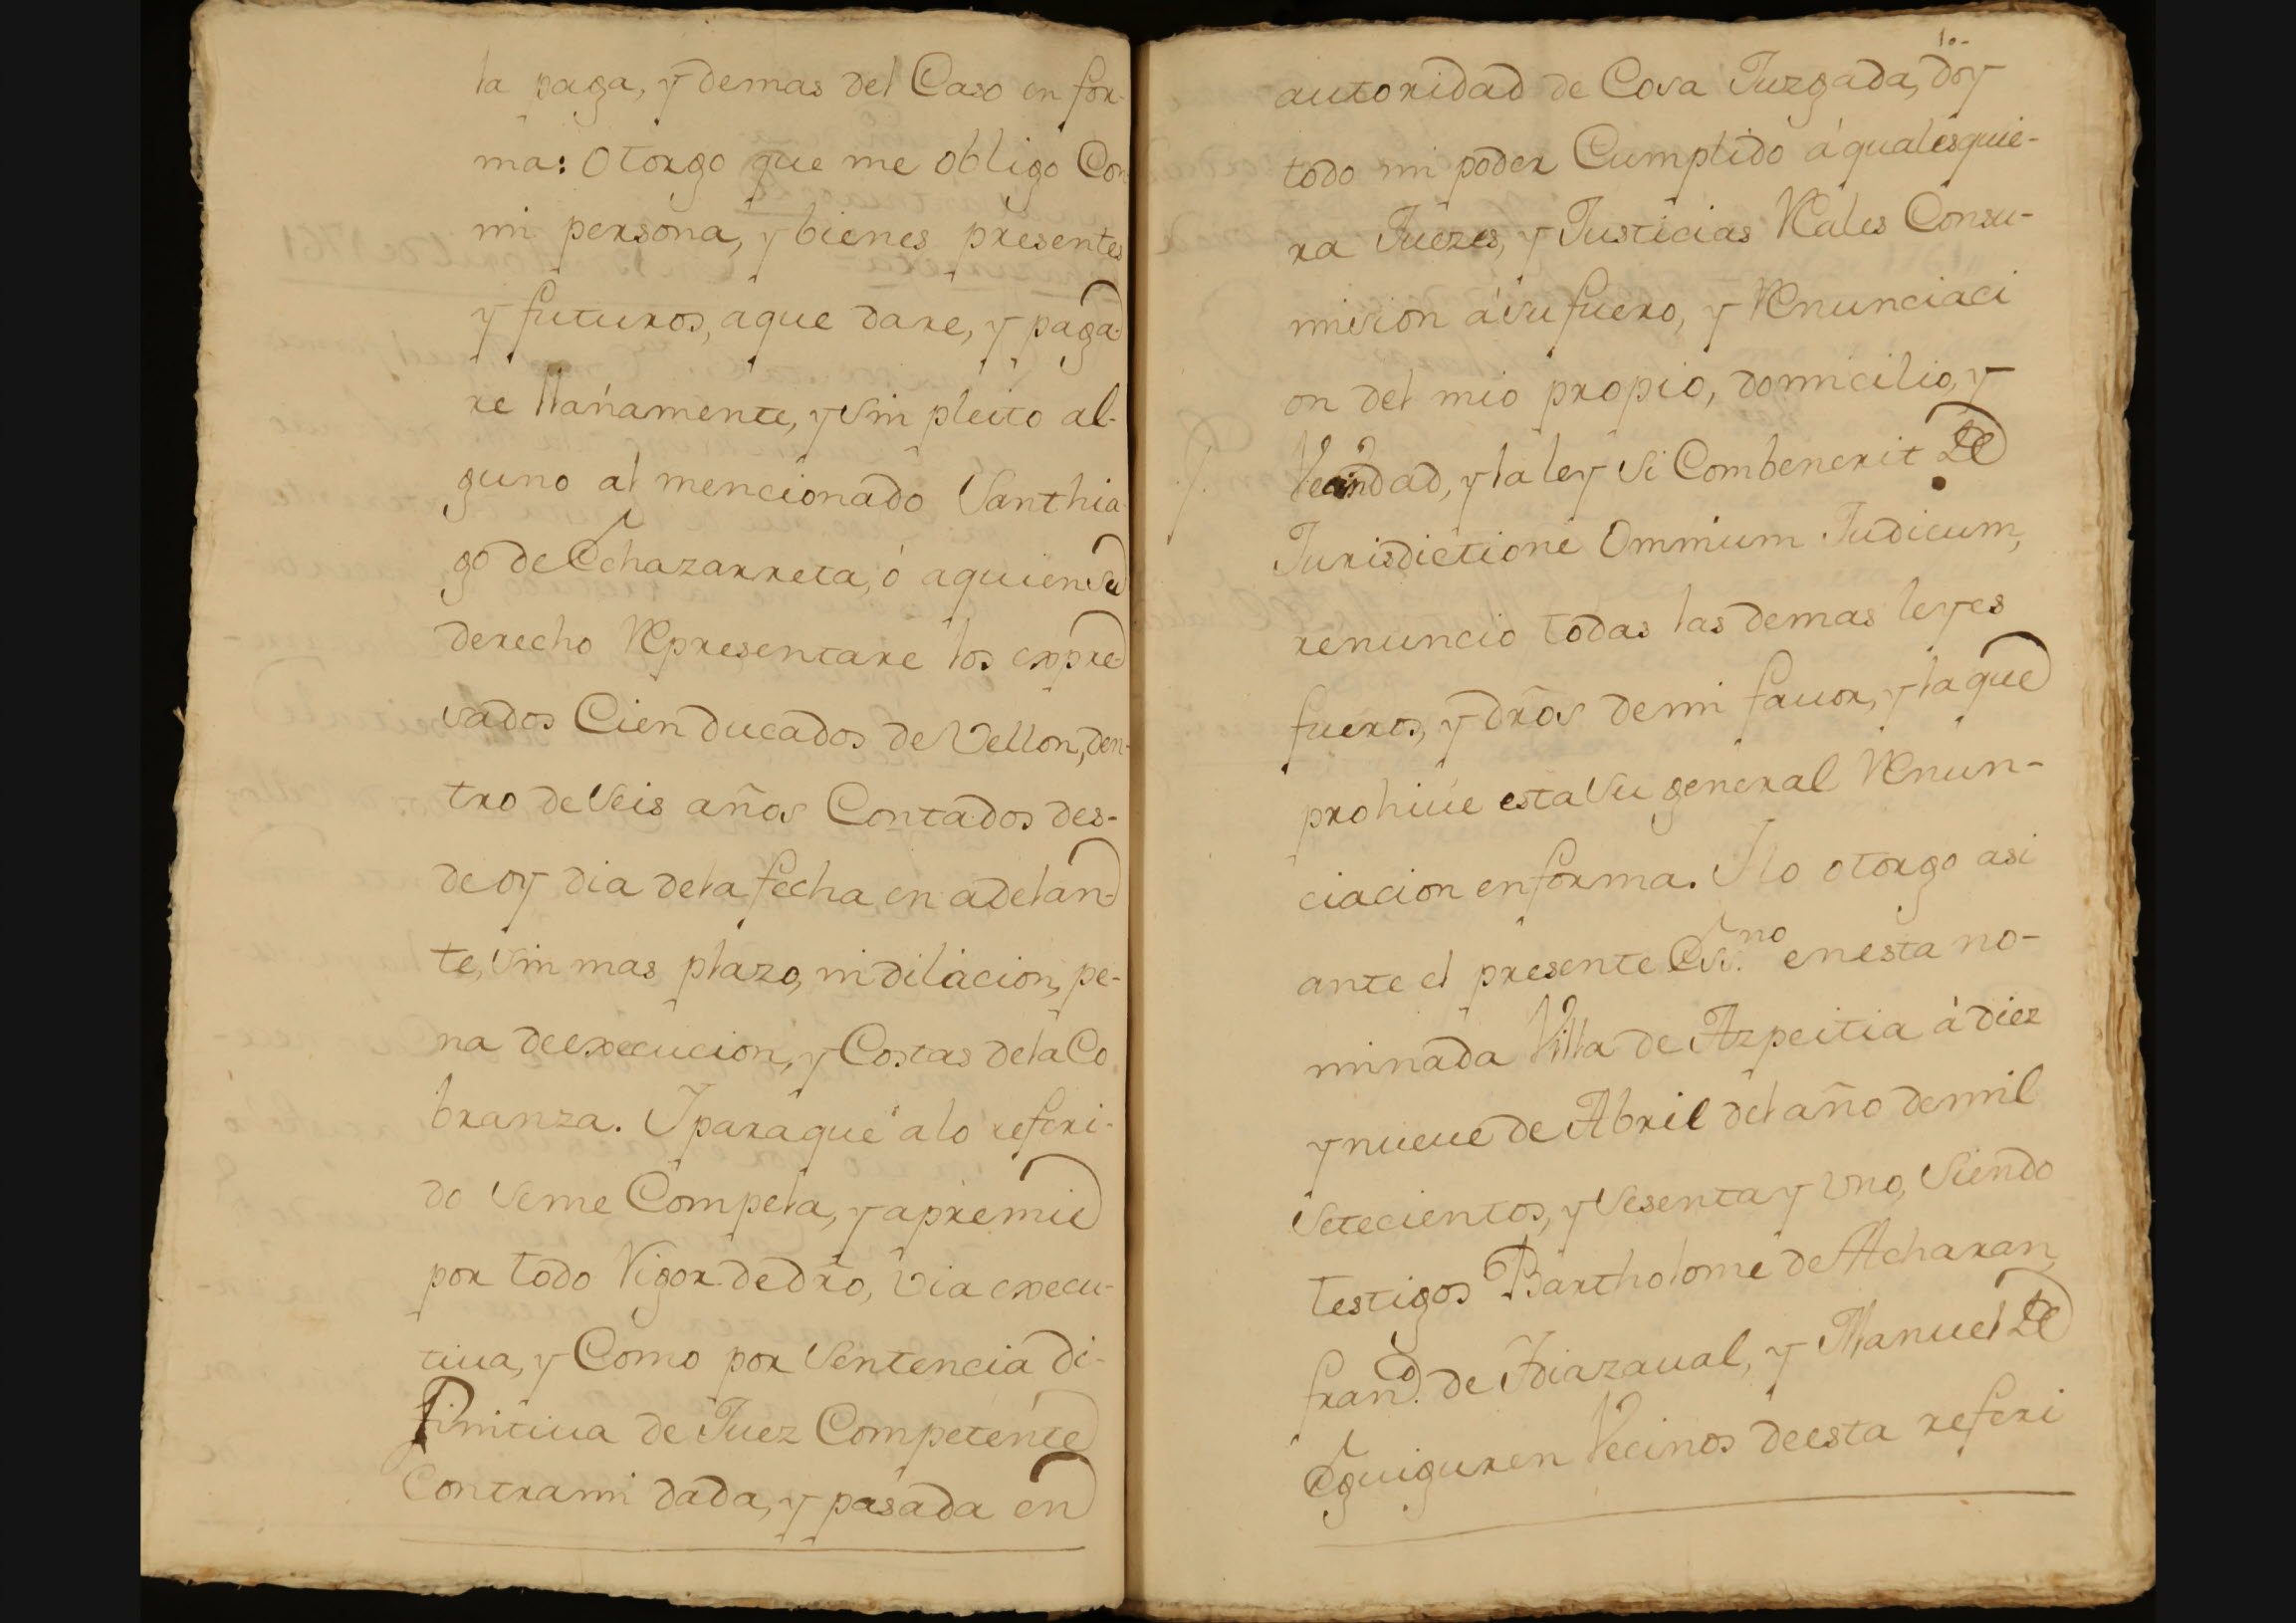 la paga, y demas del Caso en for-
ma: Otorgo que me obligo Con
mi persona, y bienes presentes
y futuros, aque dare, y paga-
re llanamente, y sin pleito al-
guno al mencionado Santhia-
go de Echazarreta, ó aquien su
derecho Representare los expre-
sados Cien ducados de Vellon, den-
tro de seis años Contados des-
de oy dia dela fecha en adelan-
te, sin mas plazo, ni dilacion, pe-
na de execucion, y Costas dela Co
branza. Y paraque alo referi-
do seme Compela, y apremie
por todo Vigor de dr̃o, via execu-
tiua, y Como por Sentencia di-
finitiua de Juez Competente
Contrami dada, y pasada en
10-
autoridad de Cosa Juzgada, doy
todo mi poder Cumplido á qualesquie-
ra Juezes, y Justicias Rales Consu-
mision á su fuero, y Renunciaci
on del mio propio, domicilio, y
Vecindad, y la ley si Combenerit De
Jurisdictione Ommium Judicum,
renuncio todas las demas leyes
fueros, y dr̃os demi fauor, y la que
prohiue esta su general Renun-
ciacion en forma. Y lo otorgo asi
ante el presente Ess.no en esta no-
minada Villa de Azpeitia á diez
y nueue de Abril del año de mil
setecientos, y sesenta y uno, siendo
testigos Bartholome de Acharan,
Fran.co de Idiazaual, y Manuel De
Eguiguren Vecinos de esta referi